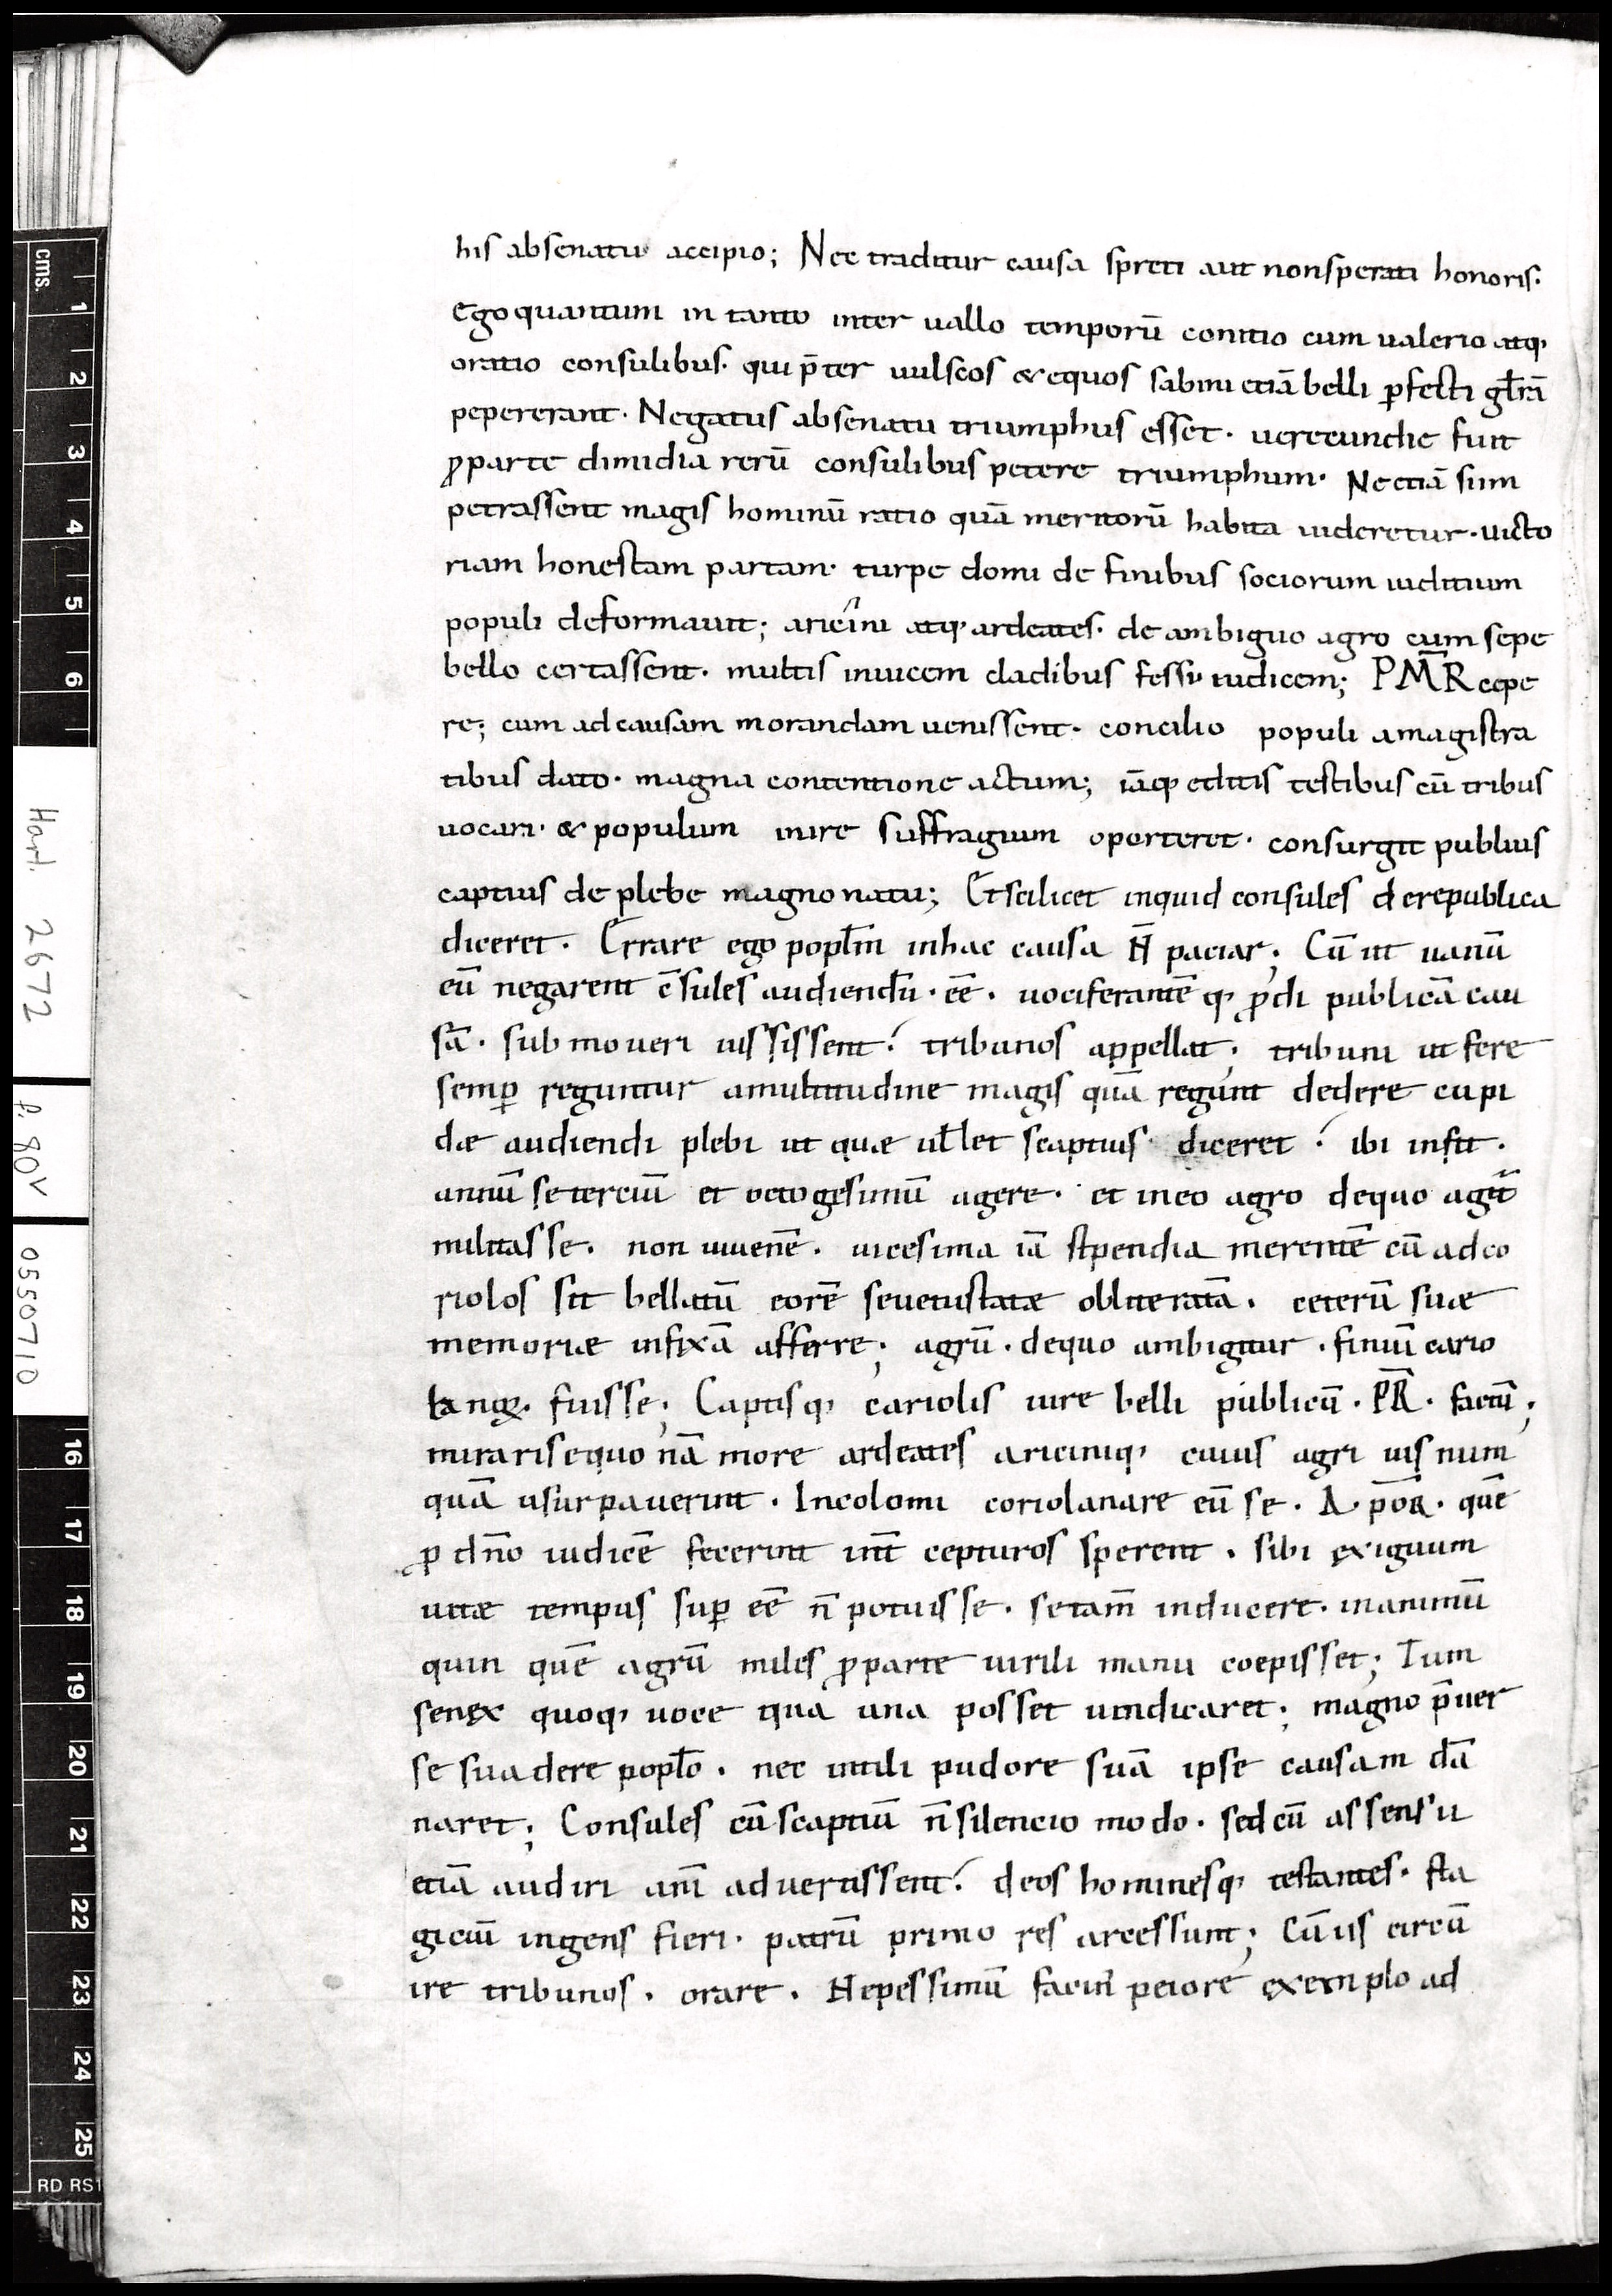 his absenatu accipio; Nec traditur causa spreti aut nonsperati honoris.
Ego quantum in tanto inter uallo temporū conitio cum ualerio atq;
oratio consulibus. qui p̄ter uulscos & equos sabini etiā belli ꝑfecti gl̄rā
pepererant. Negatus absenatu triumphus esset. uerecundie fuit
ꝓparte dimidia rerū consulibus petere triumphum. Nec etiā sim
petrassent magis hominū ratio quā meritorū habita uideretur. uicto
riam honestam partam. turpe domi de finibus sociorum iuditium
populi deformauit; aricini atq; ardeates. de ambiguo agro cum sepe
bello certassent. multis inuicem cladibus fessi iudicem; PM̄R cepe
re; cum ad causam morandam uenissent. concilio populi amagistra
tibus dato. magna contentione actum; iāq; editis testibus cū tribus
uocari. & populum inire suffragium oporteret. consurgit publius
captius de plebe magno natu; Et scilicet inquid consules derepublica
diceret. Errare ego popl̄m inhac causa N̄ paciar; Cū ut uanū
eū negarent c̄sules audiendū. eē. uociferantē q; ꝓdi publicā cau
sā. sub moueri iussissent? tribunos appellat; tribuni ut fere
semꝑ reguntur amultitudine magis quā regunt dedere cupi
dæ audiendi plebi ut quæ ul̄let scaptius diceret? ibi infit.
annū se terciū et octogesimū agere. et ineo agro dequo aget̄
militasse. non iuuenē. uicesima iā stipendia merentē cū adco
riolos sit bellatū eorē seuetustatæ obliteratā. ceterū suæ
memoriæ infixā afferre; agrū. dequo ambigitur. finiū cario
lanoꝝ. fuisse; Captisq; cariolis iure belli publicū. P̄R̄. factū;
mirarisequo nā more ardeates ariciniq; cuius agri ius num
quā usurpauerint. Incolomi coriolanare eū se. A. p̄oR̄. quē
ꝓ dn̄o iudicē fecerint int̄ cepturos sperent. sibi exiguum
uitæ tempus suꝑ eē n̄ potuisse. setam̄ inducere. inanimū
quin quē agrū miles ꝓparte uirili manu coepisset; Tum
senex quoq; uoce qua una posset uindicaret; magno p̄uer
se suadere popl̄o. nec inutili pudore suā ipse causam dā
naret; Consules cū scaptiū n̄ silencio modo. sed cū assensu
etiā audiri anī aduertissent? deos hominesq; testantes. fla
giciū ingens fieri. patrū primo res arcessunt; Cū iis circū
ire tribunos. orare. Nepessimū facin̄ peiore exemplo ad
cms.
1
2
3
4
5
6
Harl. 2672
f. 80v
0550710
16
17
18
19
20
21
22
23
24
25
RD RS1